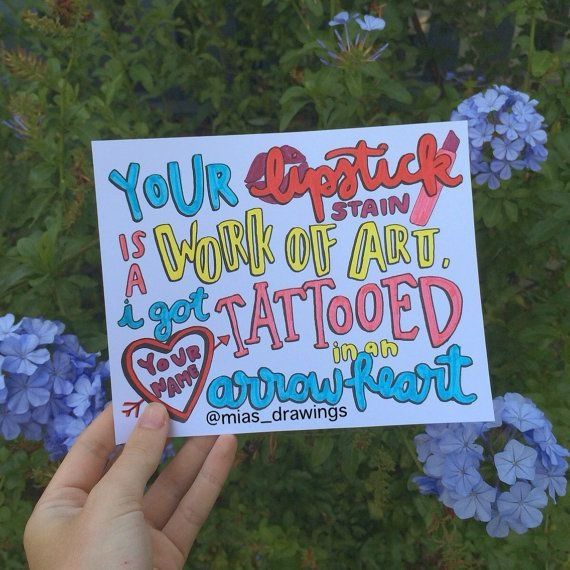 YOUR lipstick
STAIN
IS A WORK OF ART,
i got TATTOOED
YOUR NAME in an
arrow heart
@mias_drawings